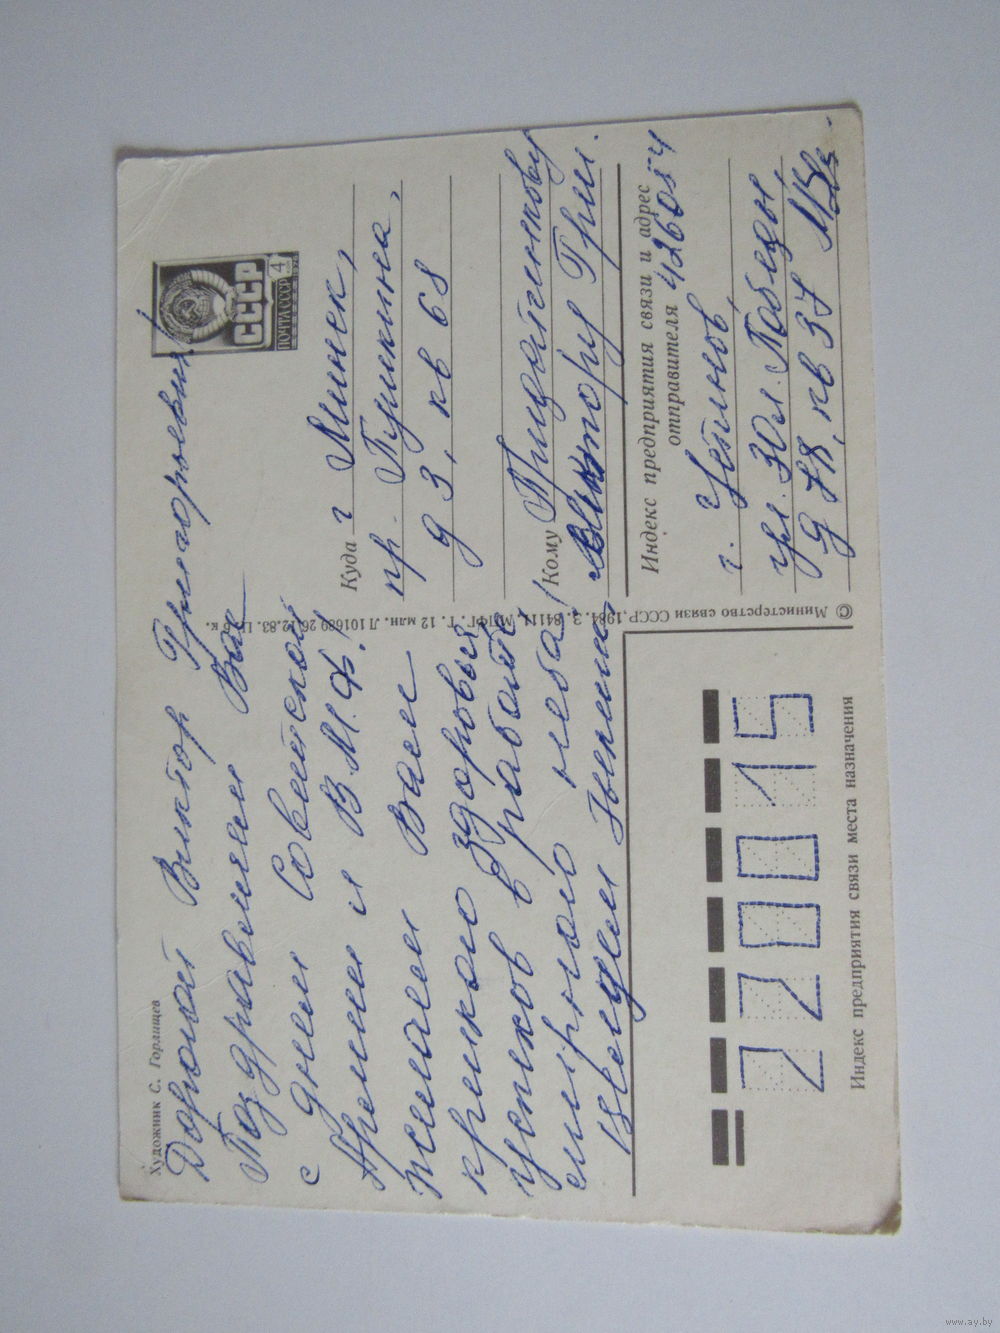 Художник С. Горлищев
Дорогой Виктор Григорьевич!
Поздравляем Вас
с днем Советской
Армии и В.М.Ф.!
Желаем Вам
крепкого здоровья
успехов в работе
мирного неба!
18
© Министерство связи СССР, 1984. З. 84111. МПФГ. Т. 12 млн. Л 101689 26.12.83. Ц. 5 к.
ПОЧТА СССР
4
СССР
Куда г Минск,
пр. Пушкина,
д 3, кв 68
Кому
Виктору Григ.
Индекс предприятия связи и адрес
отправителя 426054
г. Устинов,
ул. 30л. Победы,
д 78, кв 37
220015
Индекс предприятия связи места назначения
www.ay.by